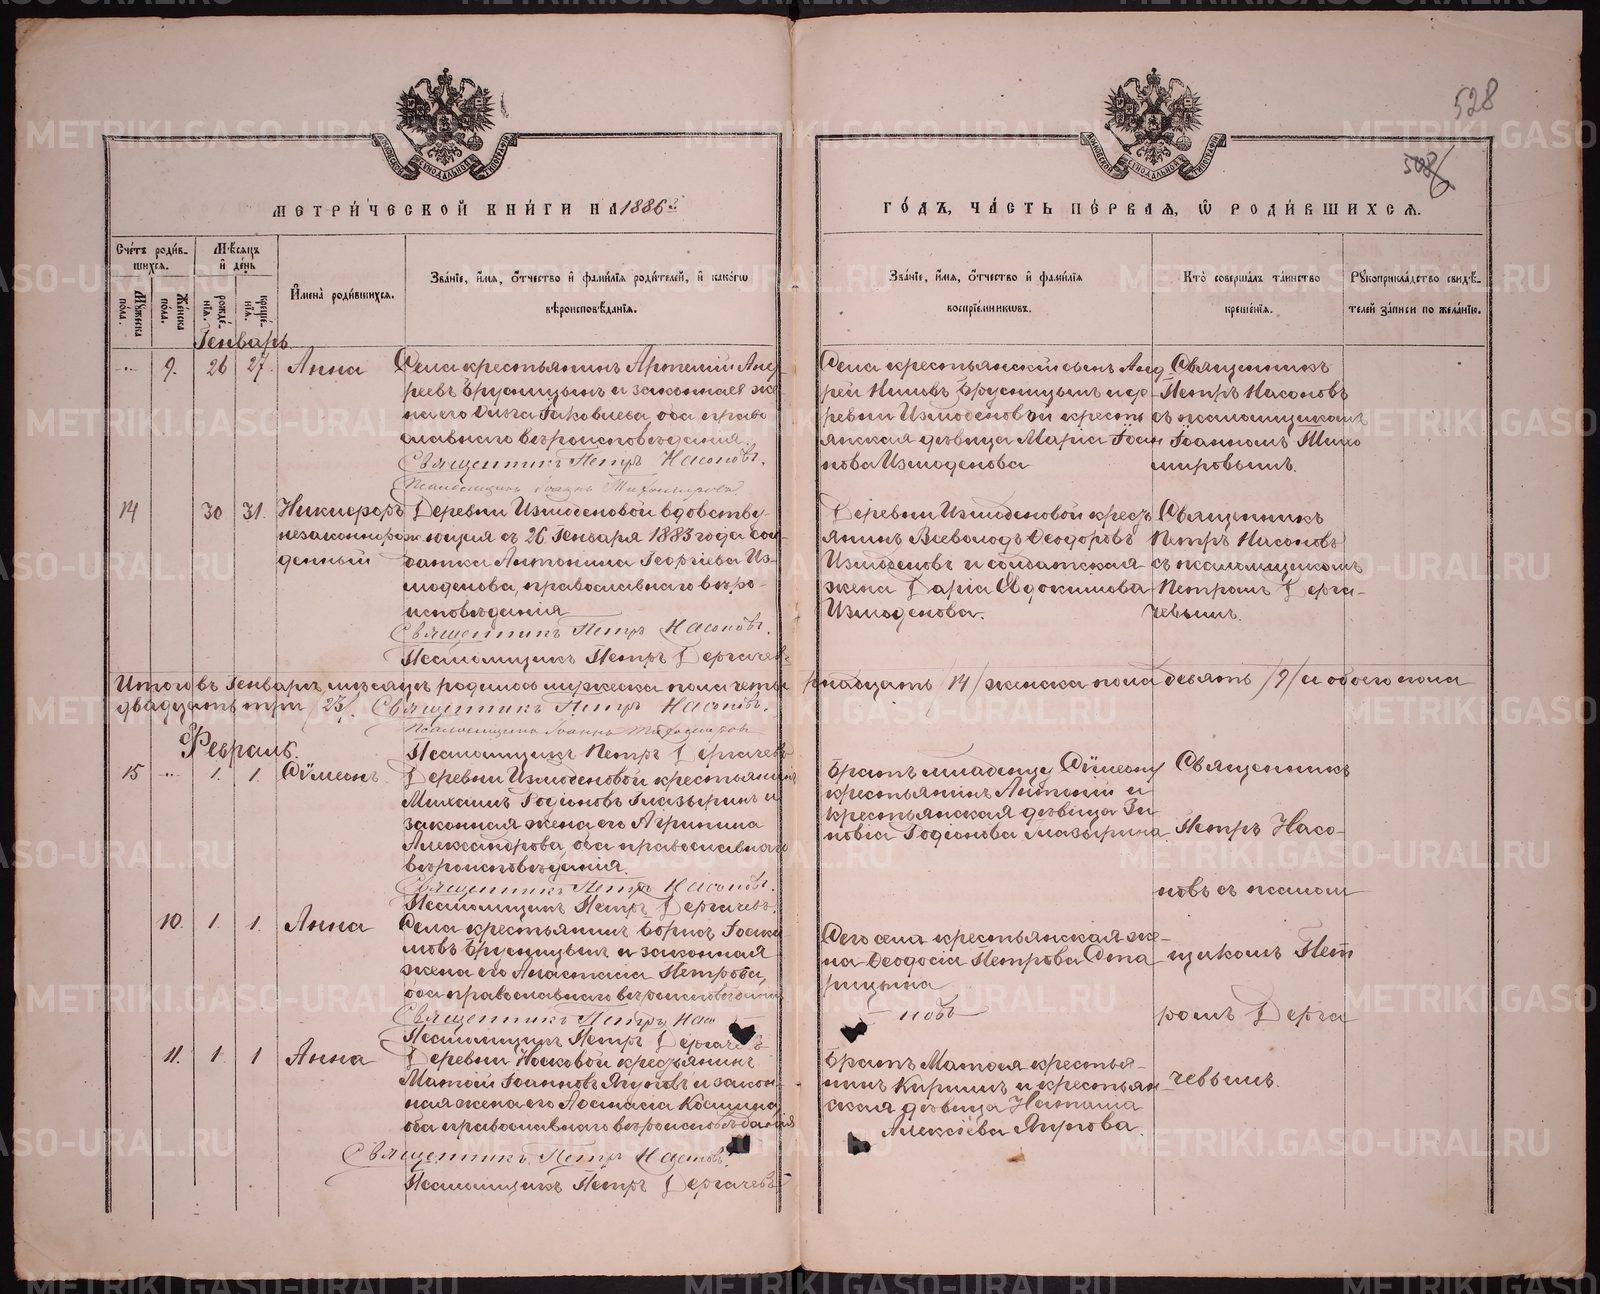 528
508
МЕТРИ́ЧЕСКОЙ КНИ́ГИ НА 1886й
ГО́ДЪ, ЧА́СТЬ ПЕ́РВАѦ, Ѡ РОДИ́ВШИХСѦ.
Сче́тъ роди́в-
шихсѧ.
Мꙋжеска
пола.
Же́нска
по́ла.
Мѣ́сѧцъ
и҆ де́нь
рожде́-
нїѧ.
креще́-
нїѧ.
И҆мена̀ роди́вшихсѧ.
Зва́нїе, и҆́мѧ, ѻ҆́тчество и҆ фами́лїѧ роди́телей, и҆ како́гѡ
вѣроисповѣ́данїѧ.
Зва́нїе, и҆́мѧ, ѻ҆́тчество и҆ фами́лїѧ
воспрїе́мникѡвъ.
Кто̀ соверша́лъ та́инство
креще́нїѧ.
Рꙋкоприкла́дство свидѣ́-
телей за́писи по жела́нїю.
Генварь
9. 26 27. Анна
Села крестьянинъ Артемій Анд-
реевъ Брусницынъ и законная же-
на его Ольга Іаковлева, оба право
славнаго вѣроисповѣданія.
Священникъ Петръ Насоновъ.
Псаломщикъ Іоаннъ Тихомировъ
Села крестьянскій сынъ Анд
рей Ниловъ Брусницынъ и де
ревни Измоденовой кресть
янская дѣвица Марія Іоан
нова Измоденова
Священникъ
Петръ Насоновъ
съ псаломщикомъ
Іоанномъ Тихо
мировымъ.
14 30 31. Никифоръ
незаконнорож
денный
Деревни Измоденовой вдовству-
ющая съ 26 Генваря 1883 года сол-
датка Антонина Георгіева Из-
моденова, православнаго вѣро-
исповѣданія
Священникъ Петръ Насоновъ.
Псаломщикъ Петръ Дергачевъ
Деревни Измоденовой крест
янинъ Всеволодъ Ѳеодоровъ
Измоденовъ и солдатская
жена Дарія Евдокимова
Измоденова.
Священникъ
Петръ Насоновъ
съ псаломщикомъ
Петромъ Дерга-
чевымъ.
Итого въ Генварѣ мѣсяцѣ родилось мужеска пола четы рнадцать /14/ женска пола девять /9/ и обоего пола
двадцать три /23/. Священникъ Петръ Насоновъ.
Псаломщикъ Іоаннъ Тихомировъ
Псаломщикъ Петръ Дергачевъ
Февраль.
15 1. 1. Сѵмеонъ
Деревни Измоденовой крестьянинъ
Михаилъ Родіоновъ Глазыринъ и
законная жена его Агрипина
Александрова, оба православнаго
вѣроисповѣданія.
Священникъ Петръ Насоновъ.
Псаломщикъ Петръ Дергачевъ.
Братъ младенцу Сѵмеону
крестьянинъ Антоній и
крестьянская дѣвица Зи
новія Родіонова Глазырина
Священникъ
Петръ Насо-
новъ съ псалом
щикомъ Пет
ромъ Дерга
чевымъ.
10. 1. 1. Анна
Села крестьянинъ Борисъ Іоаки
мовъ Брусницынъ и законная
жена его Анастасія Петрова,
оба православнаго вѣроисповѣданія
Священникъ Петръ Насо новъ
Псаломщикъ Петръ Дергачевъ
Сего села крестьянская же-
на Ѳеодосія Петрова Ста
рицына
11. 1. 1 Анна
Деревни Носковой крестьянинъ
Матѳій Іоанновъ Ягуповъ и закон-
ная жена его
оба православнаго вѣроисповѣданія
Священникъ Петръ Насоновъ.
Псаломщикъ Петръ Дергачевъ
Братъ Матѳія крестья-
нинъ Кириллъ и крестьян
ская дѣвица Наталія
Алексіева Ягупова.